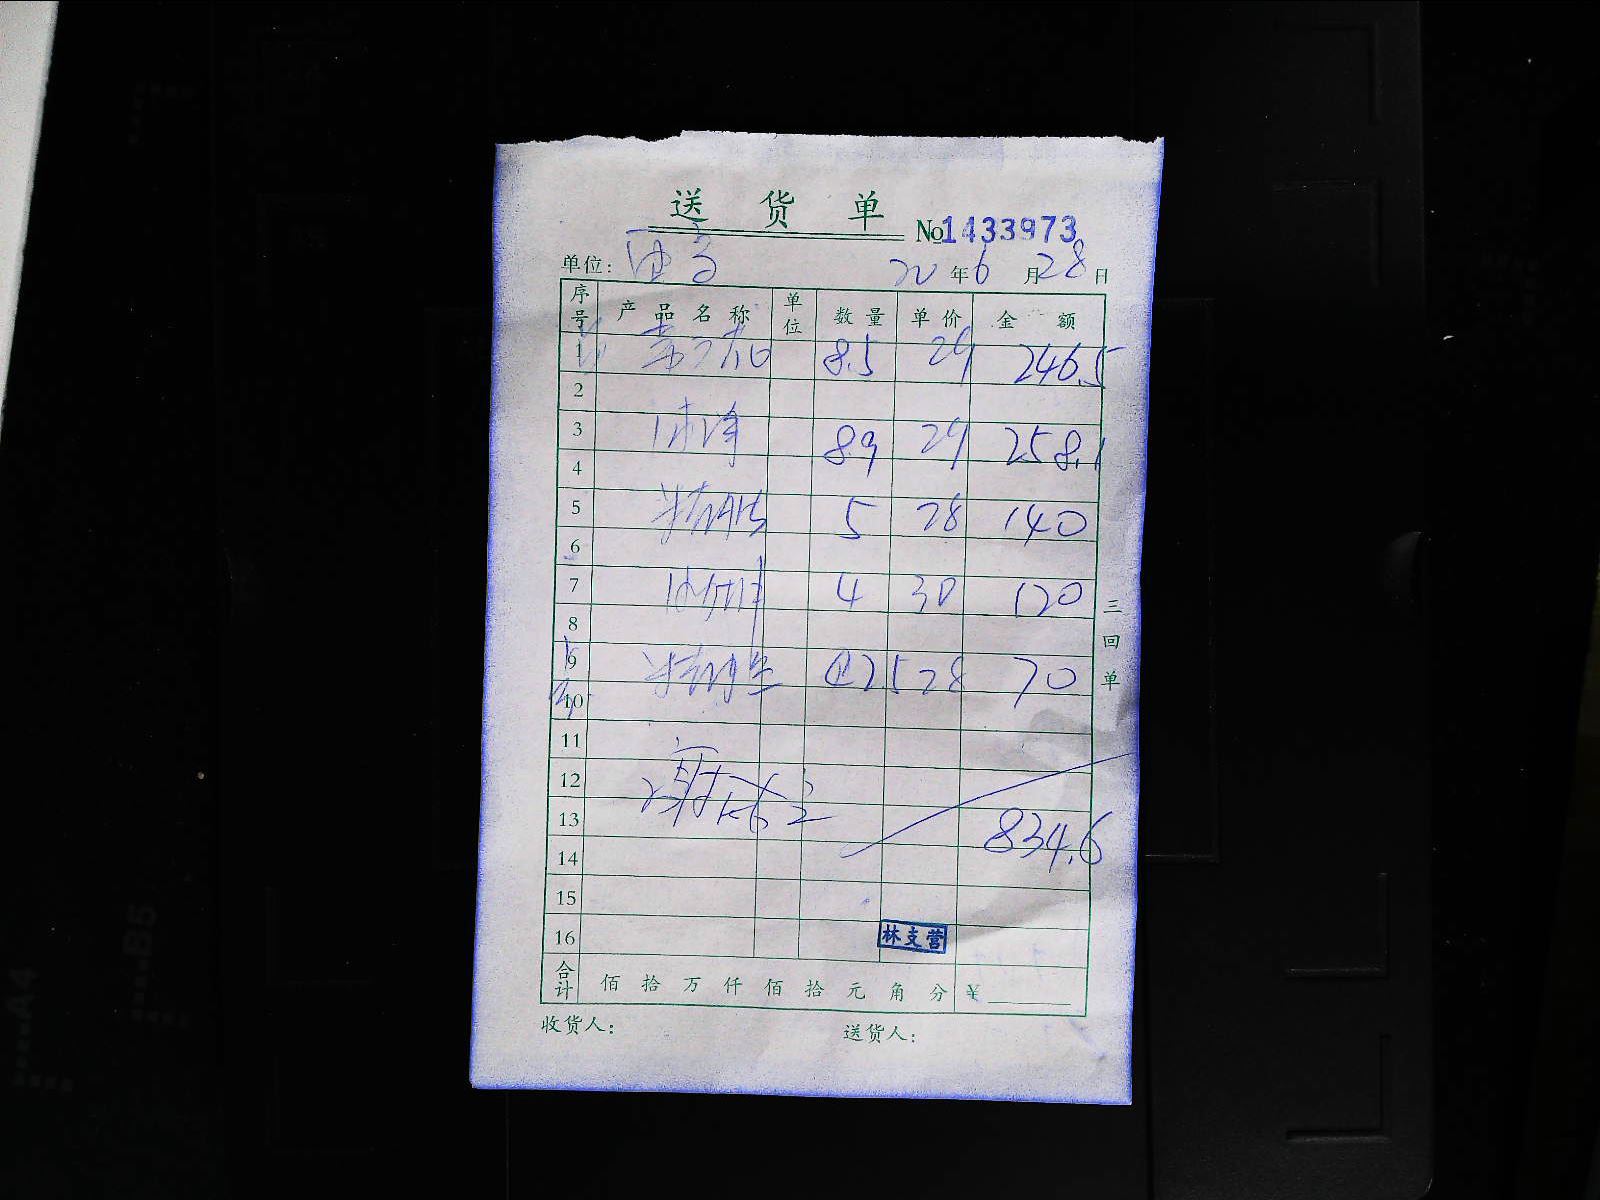 送 货 单
No1433973
单位： 20 年 6 月 28 日
序号 产品名称 单位 数量 单价 金额
1 8.5 29 246.5
2
3 8.9 29 258.1
4
5 5 28 140
6
7 4 30 120
8
9 2.5 28 70
10
11
12
13 834.6
14
15
16 林支营
合计 佰 拾 万 仟 佰 拾 元 角 分 ¥
收货人： 送货人：
三回单